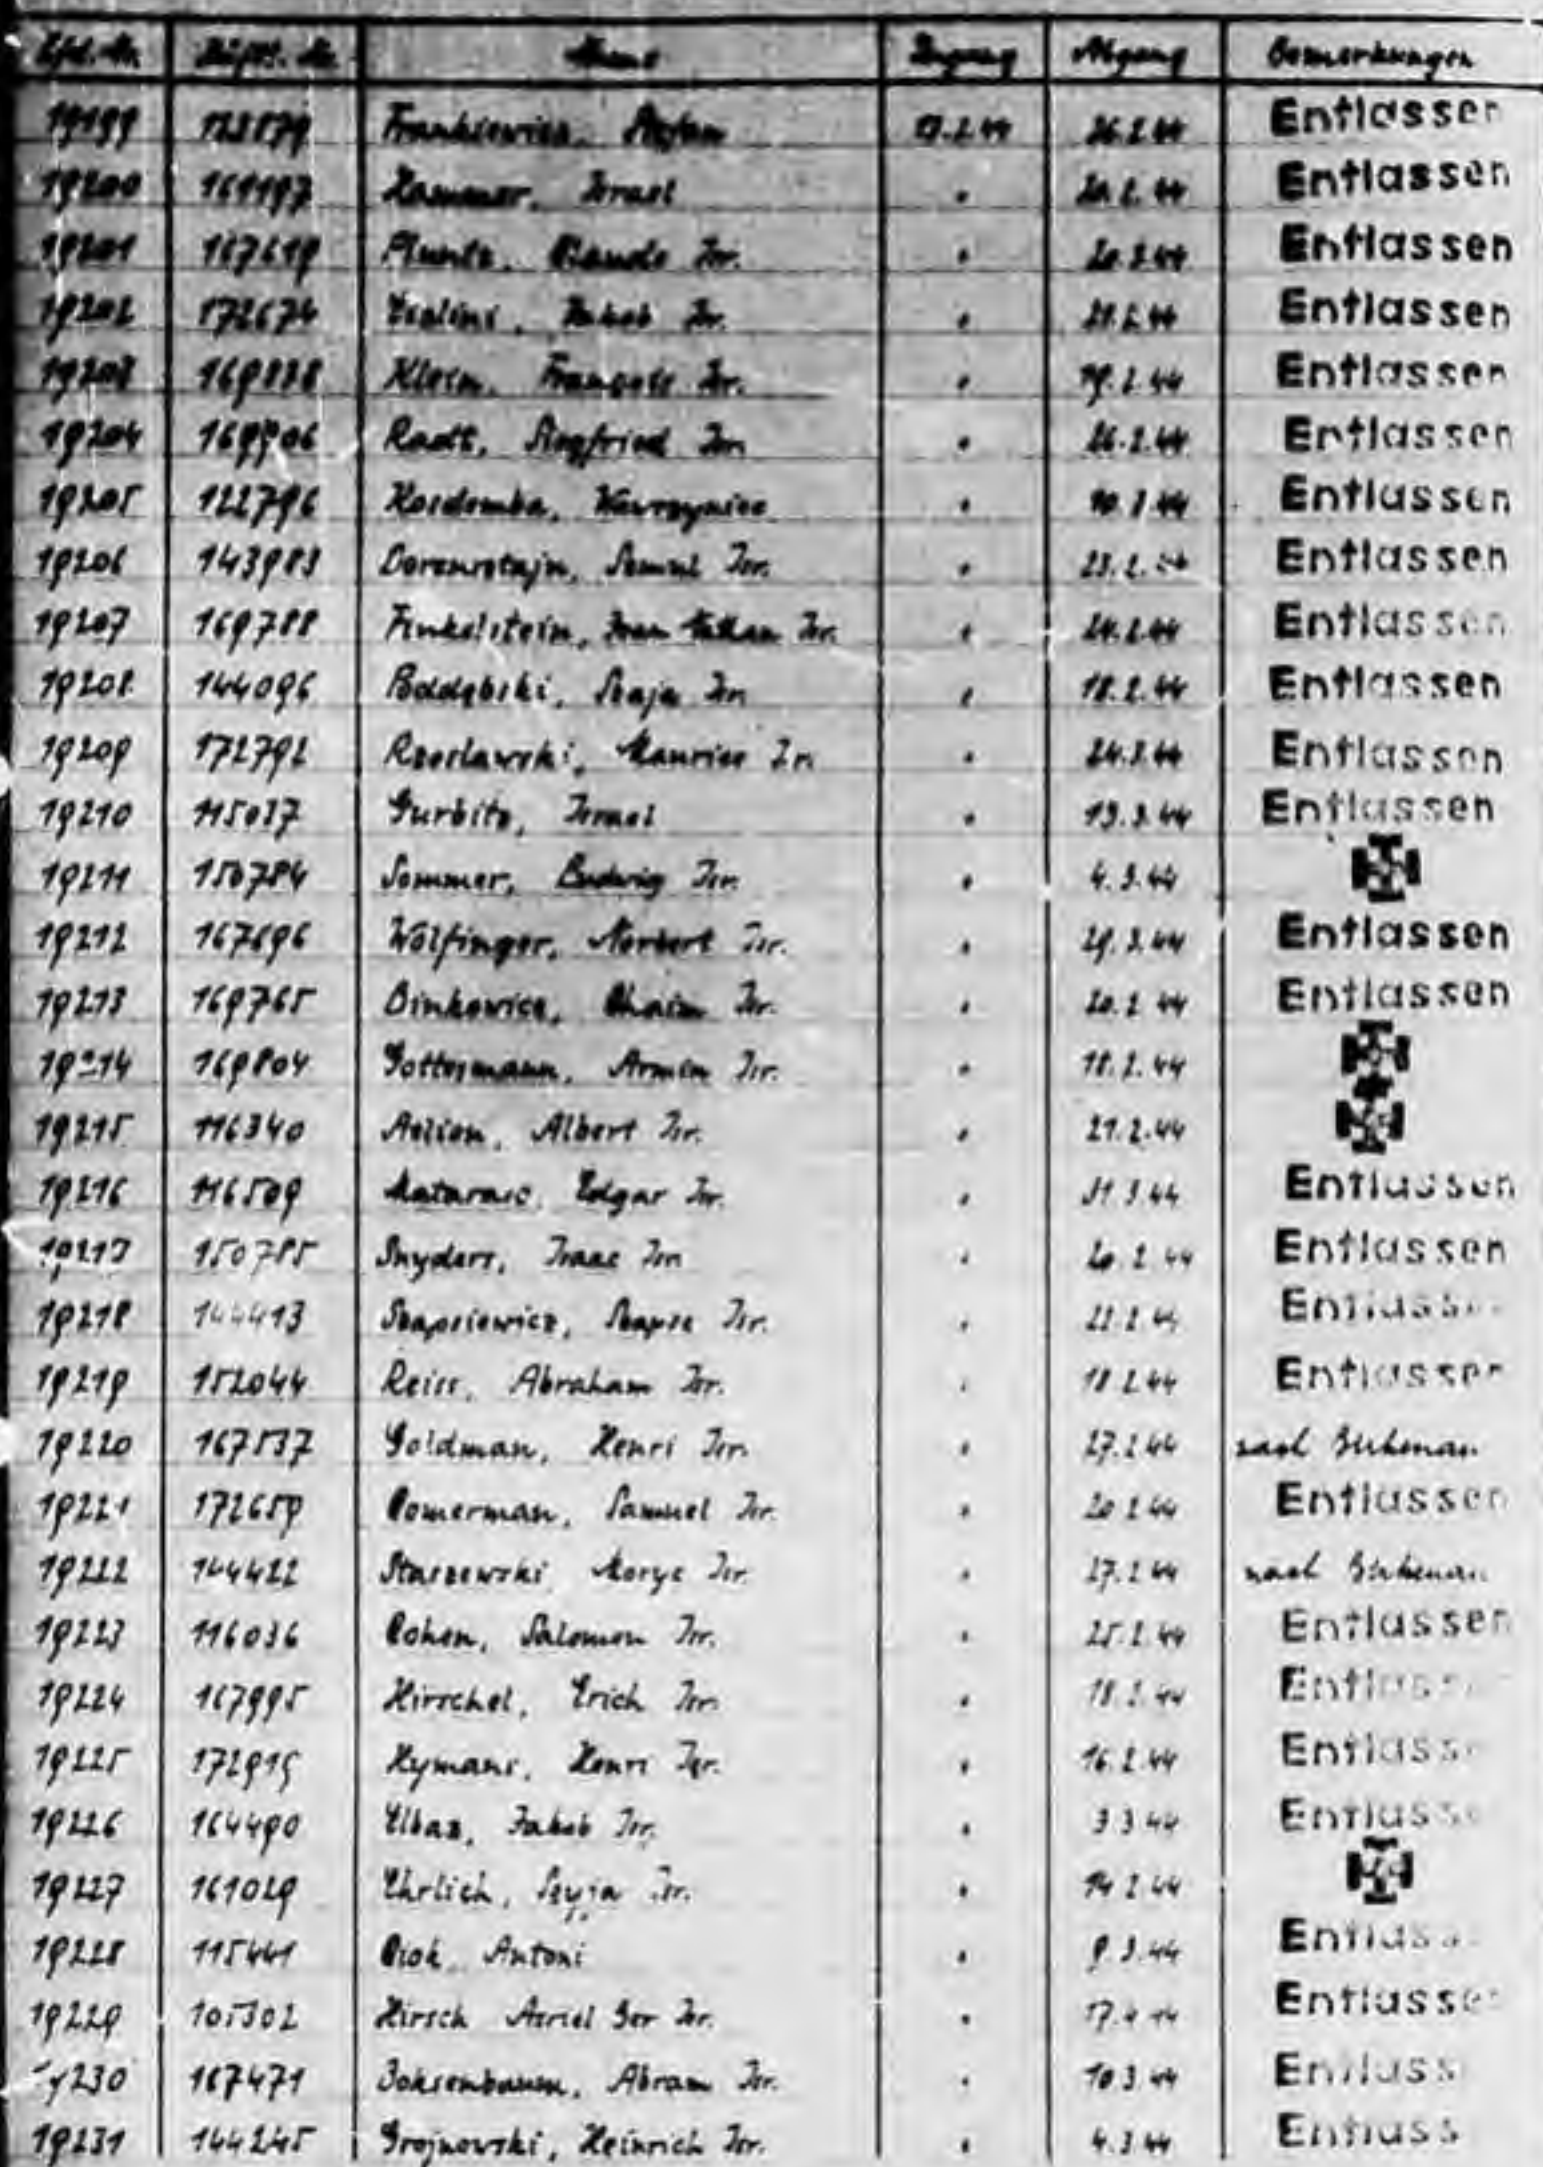 Lfd. Nr. Häftl. Nr. Name Zugang Abgang Bemerkungen
19199 Frankiewicz, 26.2.44 Entlassen
19200 161197 Hammer, Israel " 20.2.44 Entlassen
19201 167619 Claude Isr. " Entlassen
19202 172674 Jakob Isr. " Entlassen
19203 Klein, François Isr. " 19.2.44 Entlassen
19204 169906 Radt, Siegfried Isr. " 26.2.44 Entlassen
19205 122796 Wawrzyniec " 10.3.44 Entlassen
19206 143983 Samuel Isr. " 23.2.44 Entlassen
19207 169788 Finkelstein, Isr. " 24.2.44 Entlassen
19208 144096 Poddębski, Szaja Isr. " 18.2.44 Entlassen
19209 172792 Maurice Isr. " 24.3.44 Entlassen
19210 115037 Gurbitz, Israel " 13.3.44 Entlassen
19211 150784 Sommer, Ludwig Isr. " 4.3.44
19212 167696 Wolfinger, Norbert Isr. " 29.3.44 Entlassen
19213 169765 Binkowicz, Chaim Isr. " 20.2.44 Entlassen
19214 169804 Gottesmann, Armin Isr. " 18.2.44
19215 116340 Aelion, Albert Isr. " 21.2.44
19216 116509 Edgar Isr. " 31.3.44 Entlassen
19217 150785 Snyders, Isaac Isr. " 20.2.44 Entlassen
19218 144413 Szapsiewicz, Szapse Isr. " 22.2.44 Entlassen
19219 152044 Reiss, Abraham Isr. " 18.2.44 Entlassen
19220 167537 Goldman, Henri Isr. " 27.2.44 nach Birkenau
19221 172659 Comerman, Samuel Isr. " 20.2.44 Entlassen
19222 144422 Staszewski, Moryc Isr. " 27.2.44 nach Birkenau
19223 116036 Cohen, Salomon Isr. " 25.2.44 Entlassen
19224 167995 Hirschel, Erich Isr. " 18.2.44 Entlassen
19225 172915 Hymans, Henri Isr. " 16.2.44 Entlassen
19226 164490 Elbaz, Jakob Isr. " 3.3.44 Entlassen
19227 161029 Ehrlich, Isr. " 14.2.44
19228 115441 Antoni " 9.3.44 Entlassen
19229 105302 Hirsch Isr. " Entlassen
19230 167471 Abram Isr. " 10.3.44 Entlassen
19231 144245 Grojnowski, Heinrich Isr. " 4.3.44 Entlassen